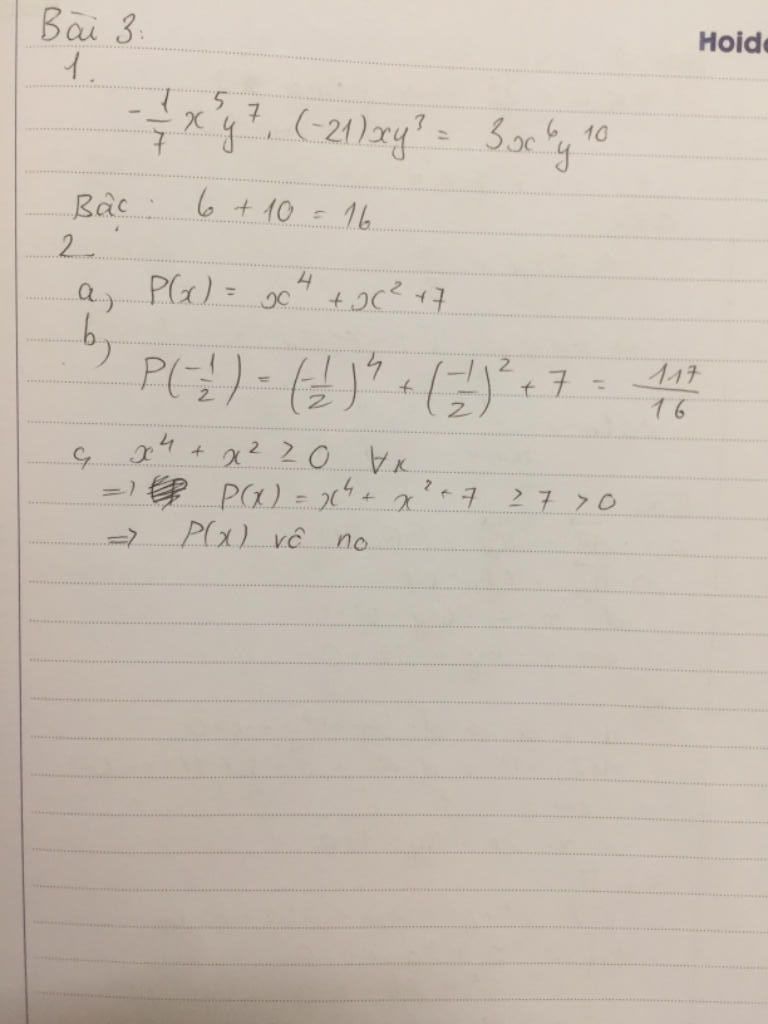 Bài 3:
Hoid
1.
-1/7 x^5 y^7 . (-21)xy^3 = 3x^6 y^10
Bậc : 6 + 10 = 16
2
a, P(x) = x^4 + x^2 + 7
b)
P(-1/2) = (-1/2)^4 + (-1/2)^2 + 7 = 117/16
c, x^4 + x^2 ≥ 0 ∀x
=> P(x) = x^4 + x^2 + 7 ≥ 7 > 0
=> P(x) vô no